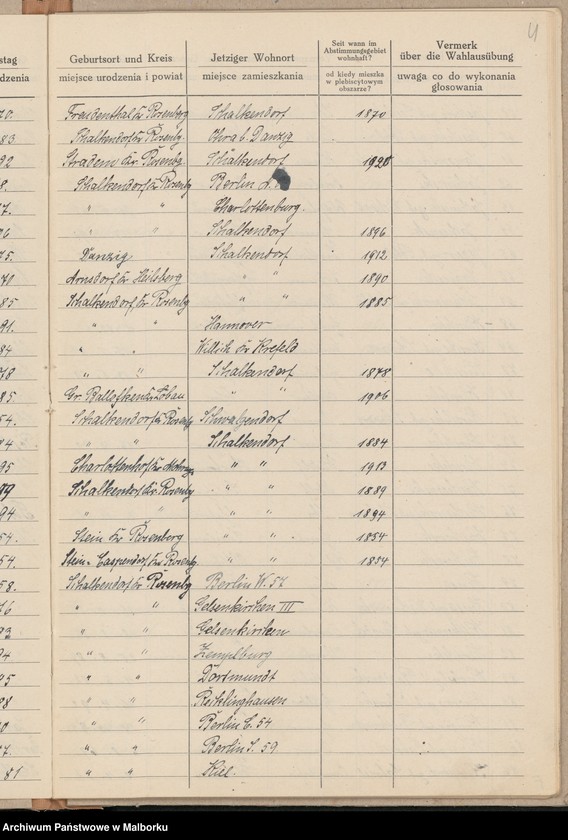 4
stag Geburtsort und Kreis Jetziger Wohnort Seit wann im Abstimmungsgebiet wohnhaft? Vermerk über die Wahlausübung
dzenia miejsce urodzenia i powiat miejsce zamieszkania od kiedy mieszka w plebiscytowym obszarze? uwaga co do wykonania głosowania
70. Freudenthal Kr. Rosenberg Schalkendorf 1870
83 Schalkendorf Kr. Rosenbg. Ohra b. Danzig
92 Stradem Kr. Rosenbg. Schalkendorf 1920
8. Schalkendorf Kr. Rosenbg Berlin
7. " " Charlottenburg.
6 " " Schalkendorf 1896
75. Danzig Schalkendorf 1912
70 Arnsdorf Kr Heilsberg " " 1890
85 Schalkendorf, Kr. Rosenbg " " 1885
91. " " Hannover
84 " " Willich Kr Krefeld
78 " " Schalkendorf 1878
85 Gr. Kr. Löbau " " 1906
54. Schalkendorf Kr Rosenbg Schwalgendorf
84 " " Schalkendorf 1884
95 Charlottenhof Kr. " " 1913
89 Schalkendorf Kr. Rosenbg " " 1889
94 " " " " 1894
54. Stein Kr Rosenberg " " 1854
54. Stein-Caspendorf Kr Rosenbg. " " 1854
58. Schalkendorf Kr Rosenbg Berlin W. 57
76 " " Gelsenkirchen III
93 " " Gelsenkirchen
94 " " Zempelburg
95 " " Dortmundt
98 " " Recklinghausen
" " Berlin C. 54
7. " " Berlin S. 59
81 " " Kiel.
Archiwum Państwowe w Malborku